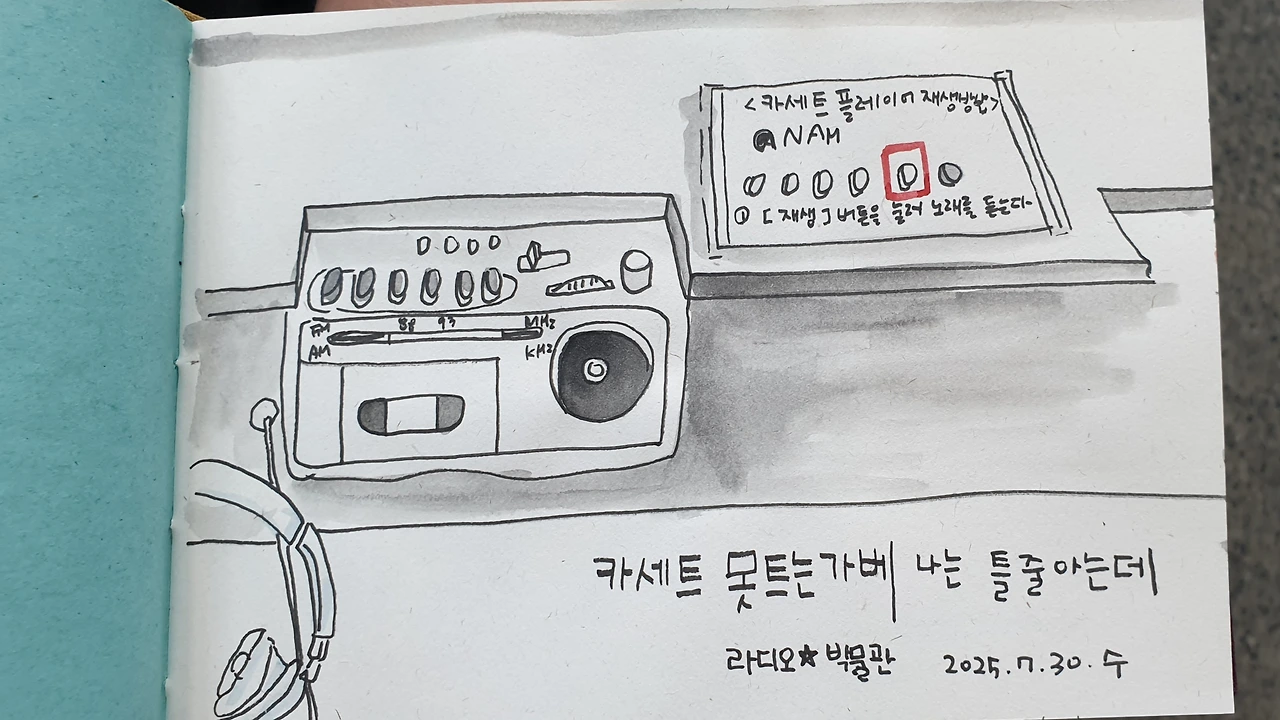 <카세트 플레이어 재생방법>
NAM
① [재생] 버튼을 눌러 노래를 듣는다.
FM 88 93 MHz
AM KHz
카세트 못트는가베 나는 틀줄아는데
라디오★박물관 2025.7.30.수